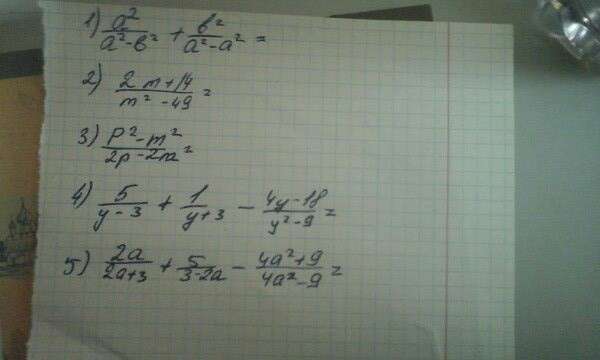 1) a²/(a²-в²) + в²/(a²-a²) =
2) (2m+14)/(m²-49) =
3) (p²-m²)/(2p-2m) =
4) 5/(y-3) + 1/(y+3) - (4y-18)/(y²-9) =
5) 2a/(2a+3) + 5/(3-2a) - (4a²+9)/(4a²-9) =